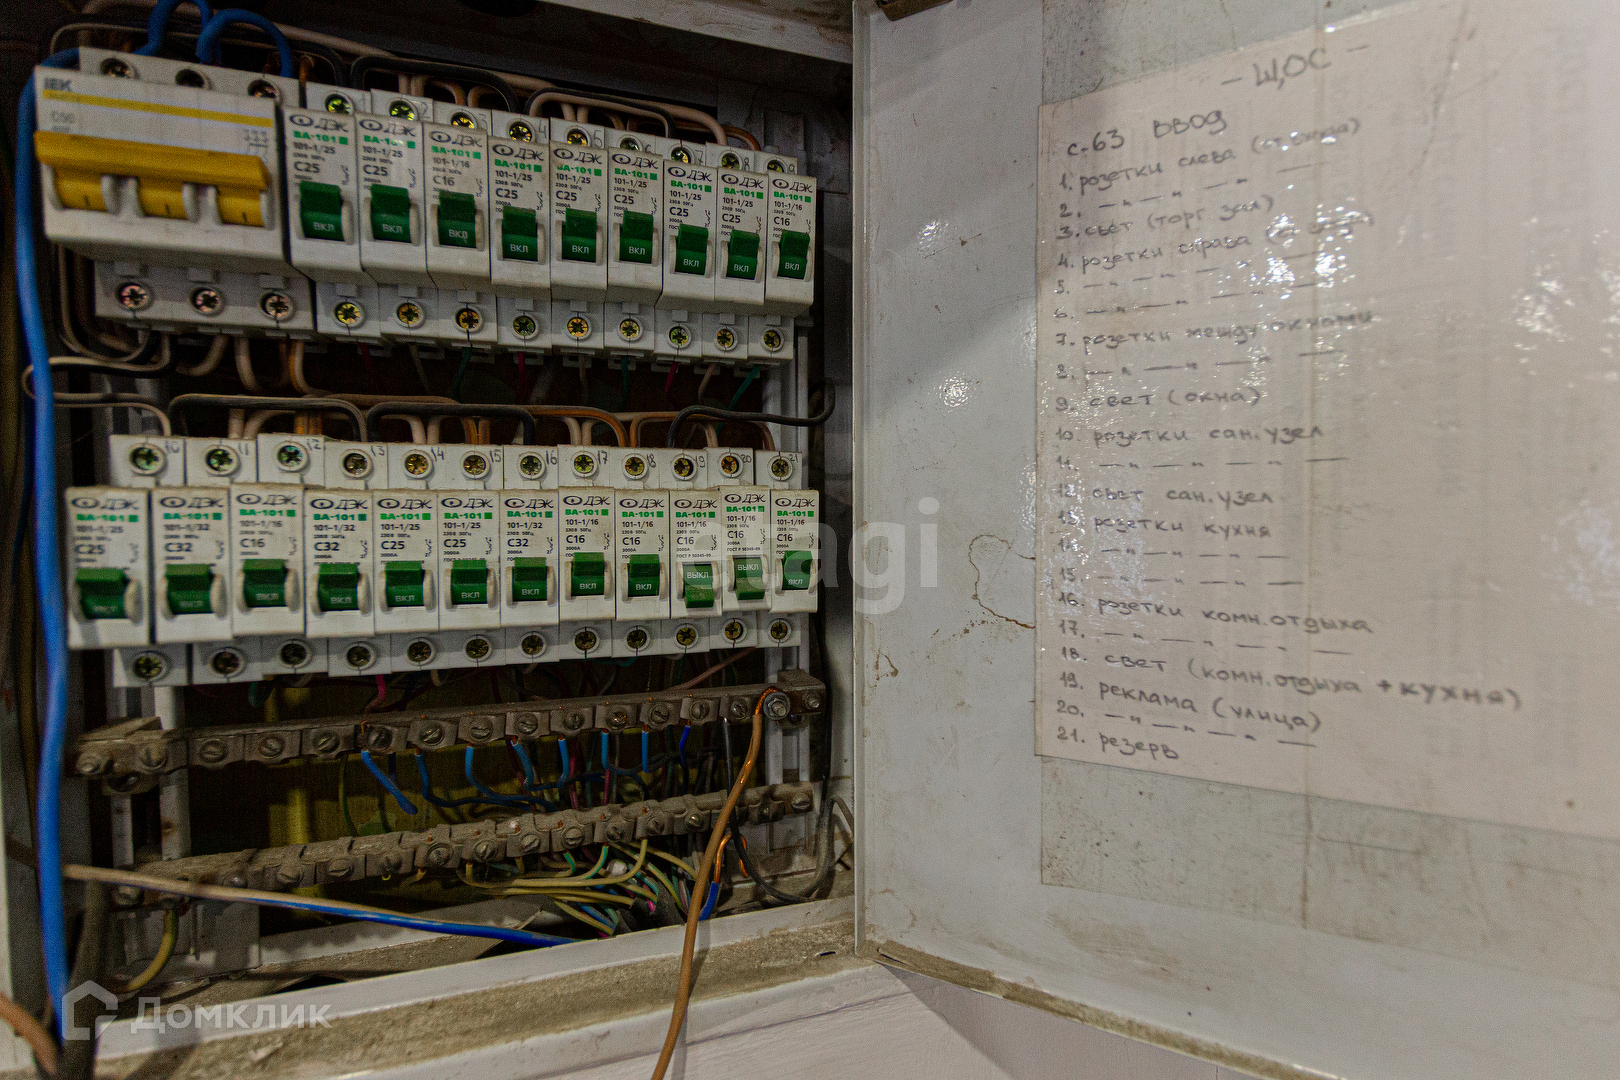 IEK
C50
1 2 3 4 5 6 7 8 9
ДЭК ДЭК ДЭК ДЭК ДЭК ДЭК ДЭК ДЭК ДЭК
ВА-101 ВА-101 ВА-101 ВА-101 ВА-101 ВА-101 ВА-101 ВА-101 ВА-101
101-1/25 101-1/25 101-1/16 101-1/25 101-1/25 101-1/25 101-1/25 101-1/25 101-1/16
C25 C25 C16 C25 C25 C25 C25 C25 C16
ВКЛ ВКЛ ВКЛ ВКЛ ВКЛ ВКЛ ВКЛ ВКЛ ВКЛ
10 11 12 13 14 15 16 17 18 19 20 21
ДЭК ДЭК ДЭК ДЭК ДЭК ДЭК ДЭК ДЭК ДЭК ДЭК ДЭК ДЭК
ВА-101 ВА-101 ВА-101 ВА-101 ВА-101 ВА-101 ВА-101 ВА-101 ВА-101 ВА-101 ВА-101 ВА-101
101-1/25 101-1/32 101-1/16 101-1/32 101-1/25 101-1/25 101-1/32 101-1/16 101-1/16 101-1/16 101-1/16 101-1/16
C25 C32 C16 C32 C25 C25 C32 C16 C16 C16 C16 C16
ВКЛ ВКЛ ВКЛ ВКЛ ВКЛ ВКЛ ВКЛ ВКЛ ВКЛ ВЫКЛ ВЫКЛ ВКЛ
- ЩОС -
с-63 ввод
1. розетки слева (от входа)
2. — " — " — " —
3. свет (торг. зал)
4. розетки справа (от входа)
5. — " — " — " —
6. — " — " — " —
7. розетки между окнами
8. — " — " — " —
9. свет (окна)
10. розетки сан.узел
11. — " — " — " —
12. свет сан.узел
13. розетки кухня
14. — " — " — " —
15. — " — " — " —
16. розетки комн.отдыха
17. — " — " — " —
18. свет (комн.отдыха + кухня)
19. реклама (улица)
20. — " — " — " —
21. резерв
etagi
Домклик